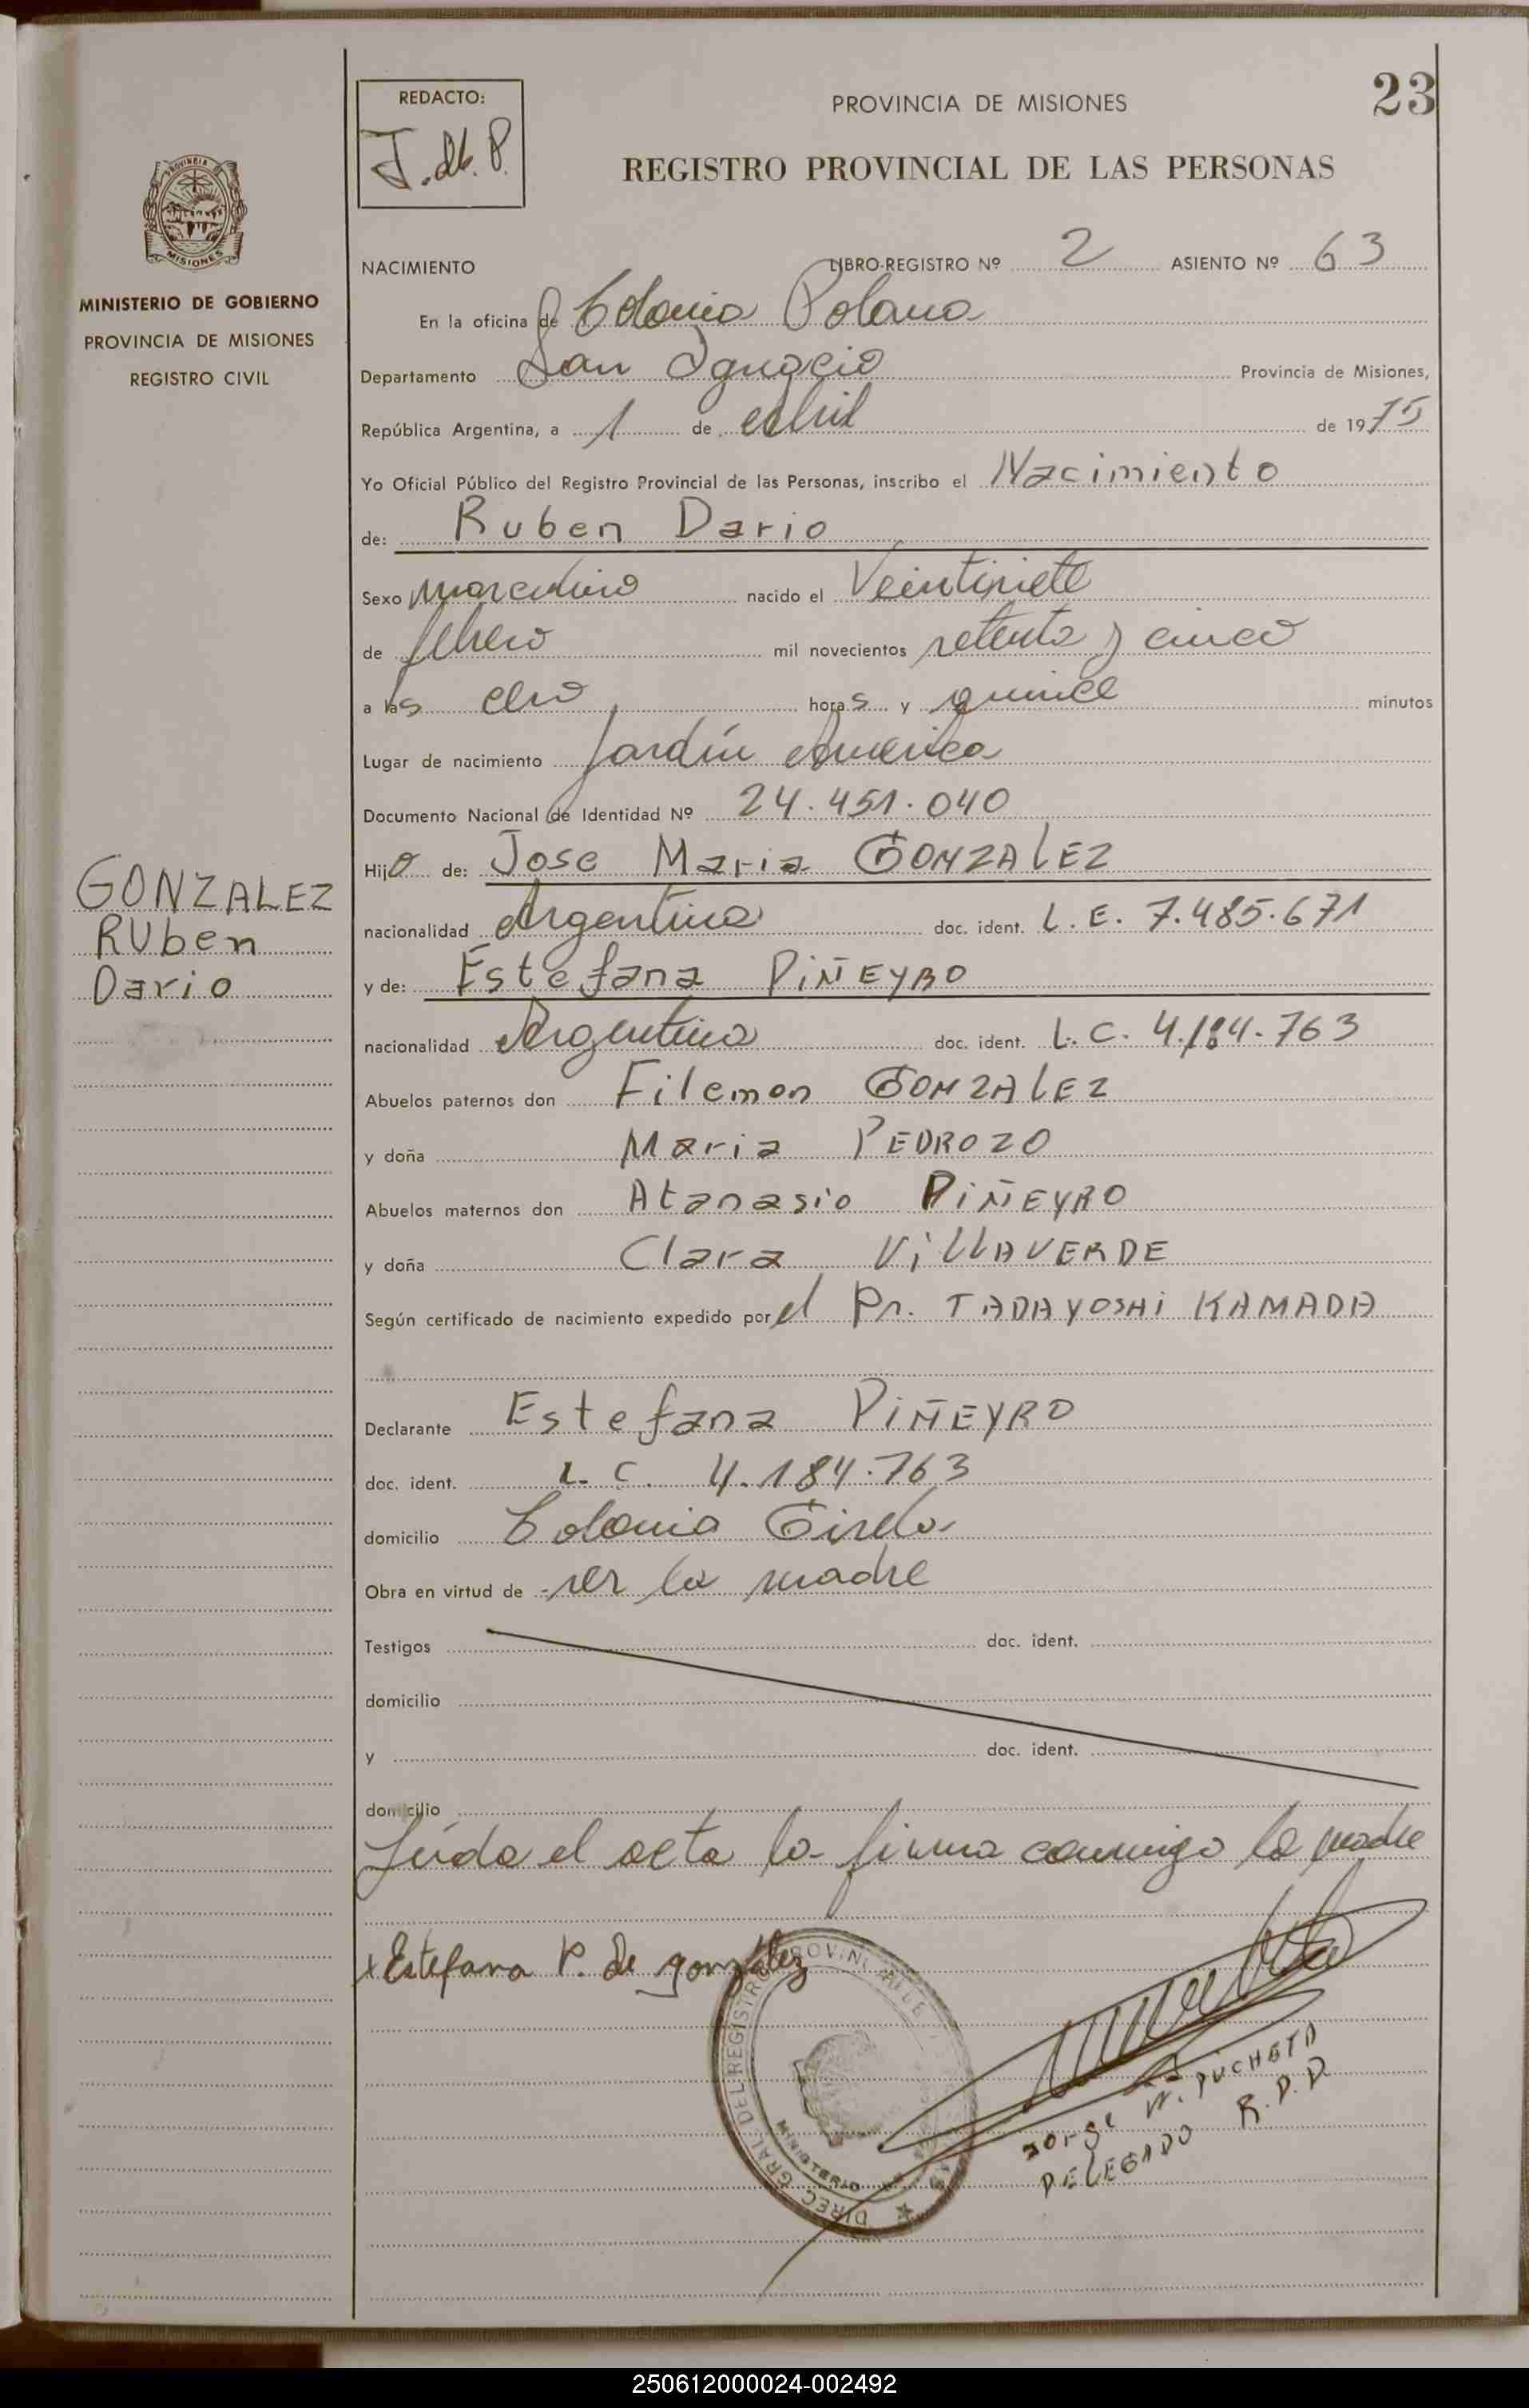 23
REDACTO:
J. db. P.
PROVINCIA DE MISIONES
REGISTRO PROVINCIAL DE LAS PERSONAS
PROVINCIA
MISIONES
MINISTERIO DE GOBIERNO
PROVINCIA DE MISIONES
REGISTRO CIVIL
NACIMIENTO LIBRO-REGISTRO Nº 2 ASIENTO Nº 63
En la oficina de Colonia Polana
Departamento San Ignacio Provincia de Misiones,
República Argentina, a 1 de abril de 1975
Yo Oficial Público del Registro Provincial de las Personas, inscribo el Nacimiento
de: Ruben Dario
Sexo masculino nacido el Veintisiete
de febrero mil novecientos setenta y cinco
a las horas y quince minutos
Lugar de nacimiento Jardín America
Documento Nacional de Identidad Nº 24.451.040
Hijo de: Jose Maria GONZALEZ
GONZALEZ
RUben
Dario
nacionalidad Argentina doc. ident. L. E. 7.485.671
y de: Estefana PIÑEYRO
nacionalidad Argentina doc. ident. L. C. 4.184.763
Abuelos paternos don Filemon GONZALEZ
y doña Maria PEDROZO
Abuelos maternos don Atanasio PIÑEYRO
y doña Clara ViLLAVERDE
Según certificado de nacimiento expedido por el Dr. TADAYOSHI KAMADA
Declarante Estefana PIÑEYRO
doc. ident. L. C. 4.184.763
domicilio Colonia Gisela
Obra en virtud de ser la madre
Testigos doc. ident.
domicilio
y doc. ident.
domicilio
Leída el acta la firma conmigo la madre
x Estefana P. de gonzález
DIREC. GRAL. DEL REGISTRO PROVINCIAL DE
MINISTERIO
Jorge W. PUCHETA
DELEGADO R.P.P
250612000024-002492